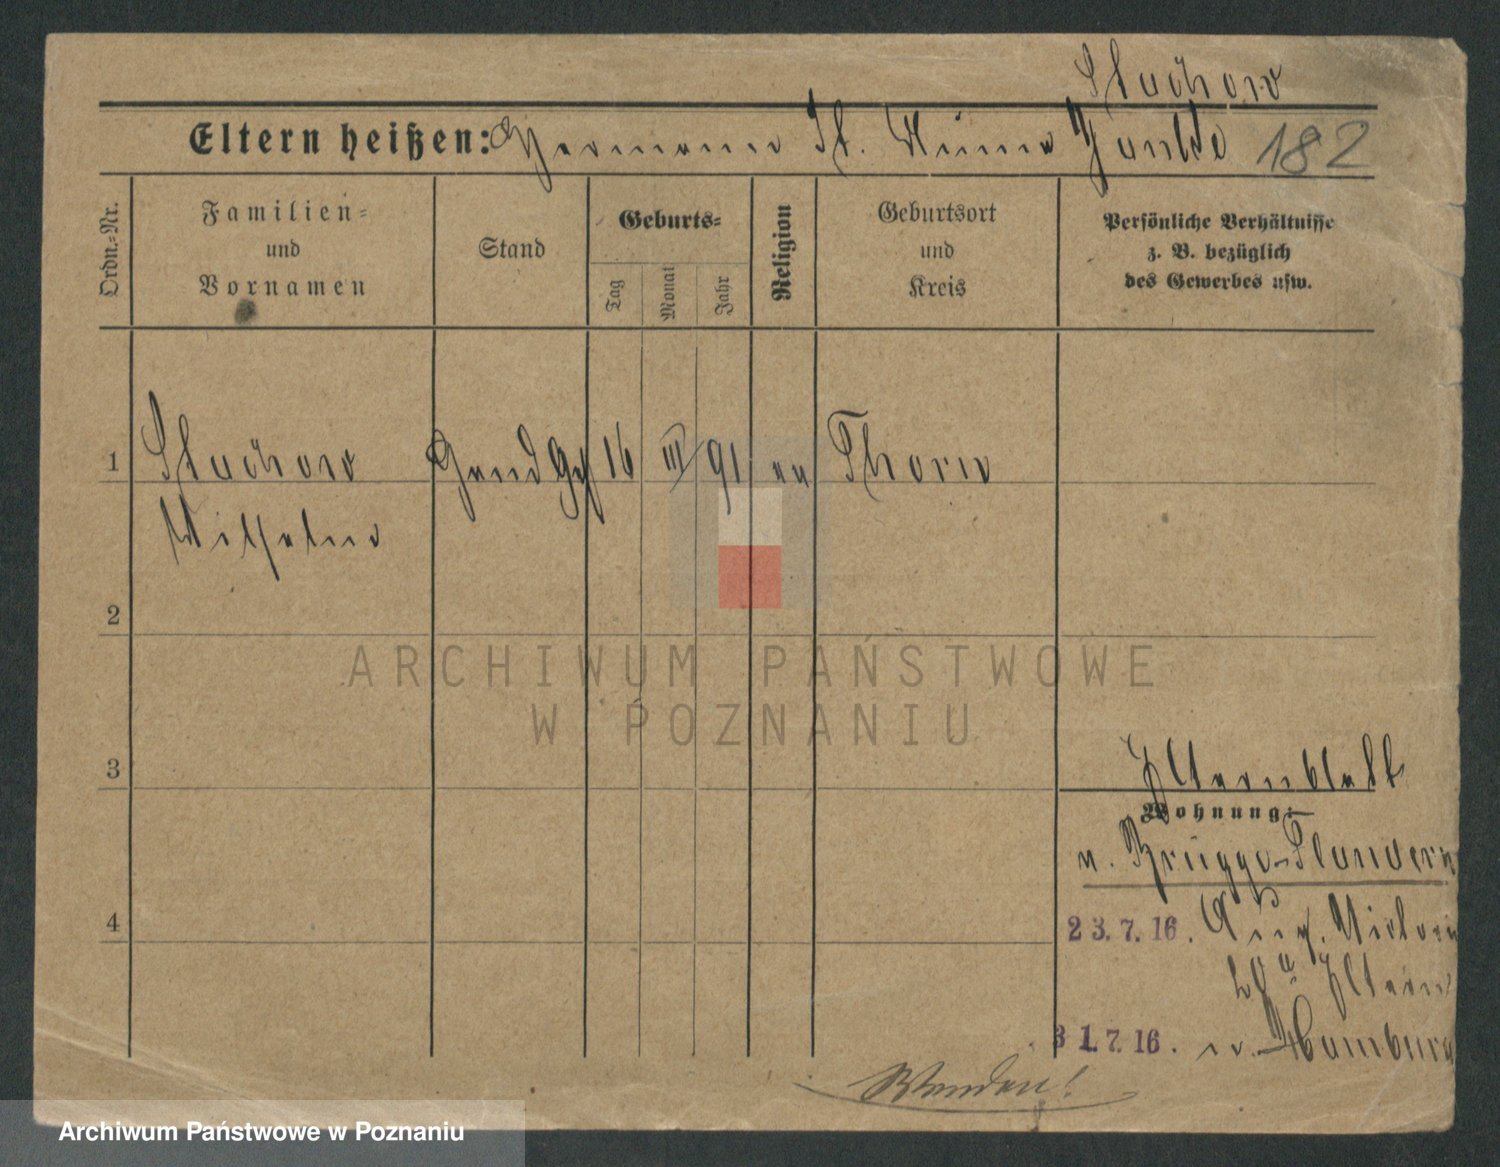 Stachow
Eltern heißen: Hermann St. Minna Jahnke 182
Ordn.-Nr.
Familien-
und
Vornamen
Stand
Geburts-
Tag
Monat
Jahr
Religion
Geburtsort
und
Kreis
Persönliche Verhältnisse
z. B. bezüglich
des Gewerbes usw.
1 Stachow 16 III 91 ev Thorn
Wilhelm
2
ARCHIWUM PAŃSTWOWE
W POZNANIU
3
Elternblatt
Wohnung:
n. Brügge-Flandern
4
23.7.16. Aug. Victoria
Eltern
31.7.16. n. Hamburg
Wenden!
Archiwum Państwowe w Poznaniu